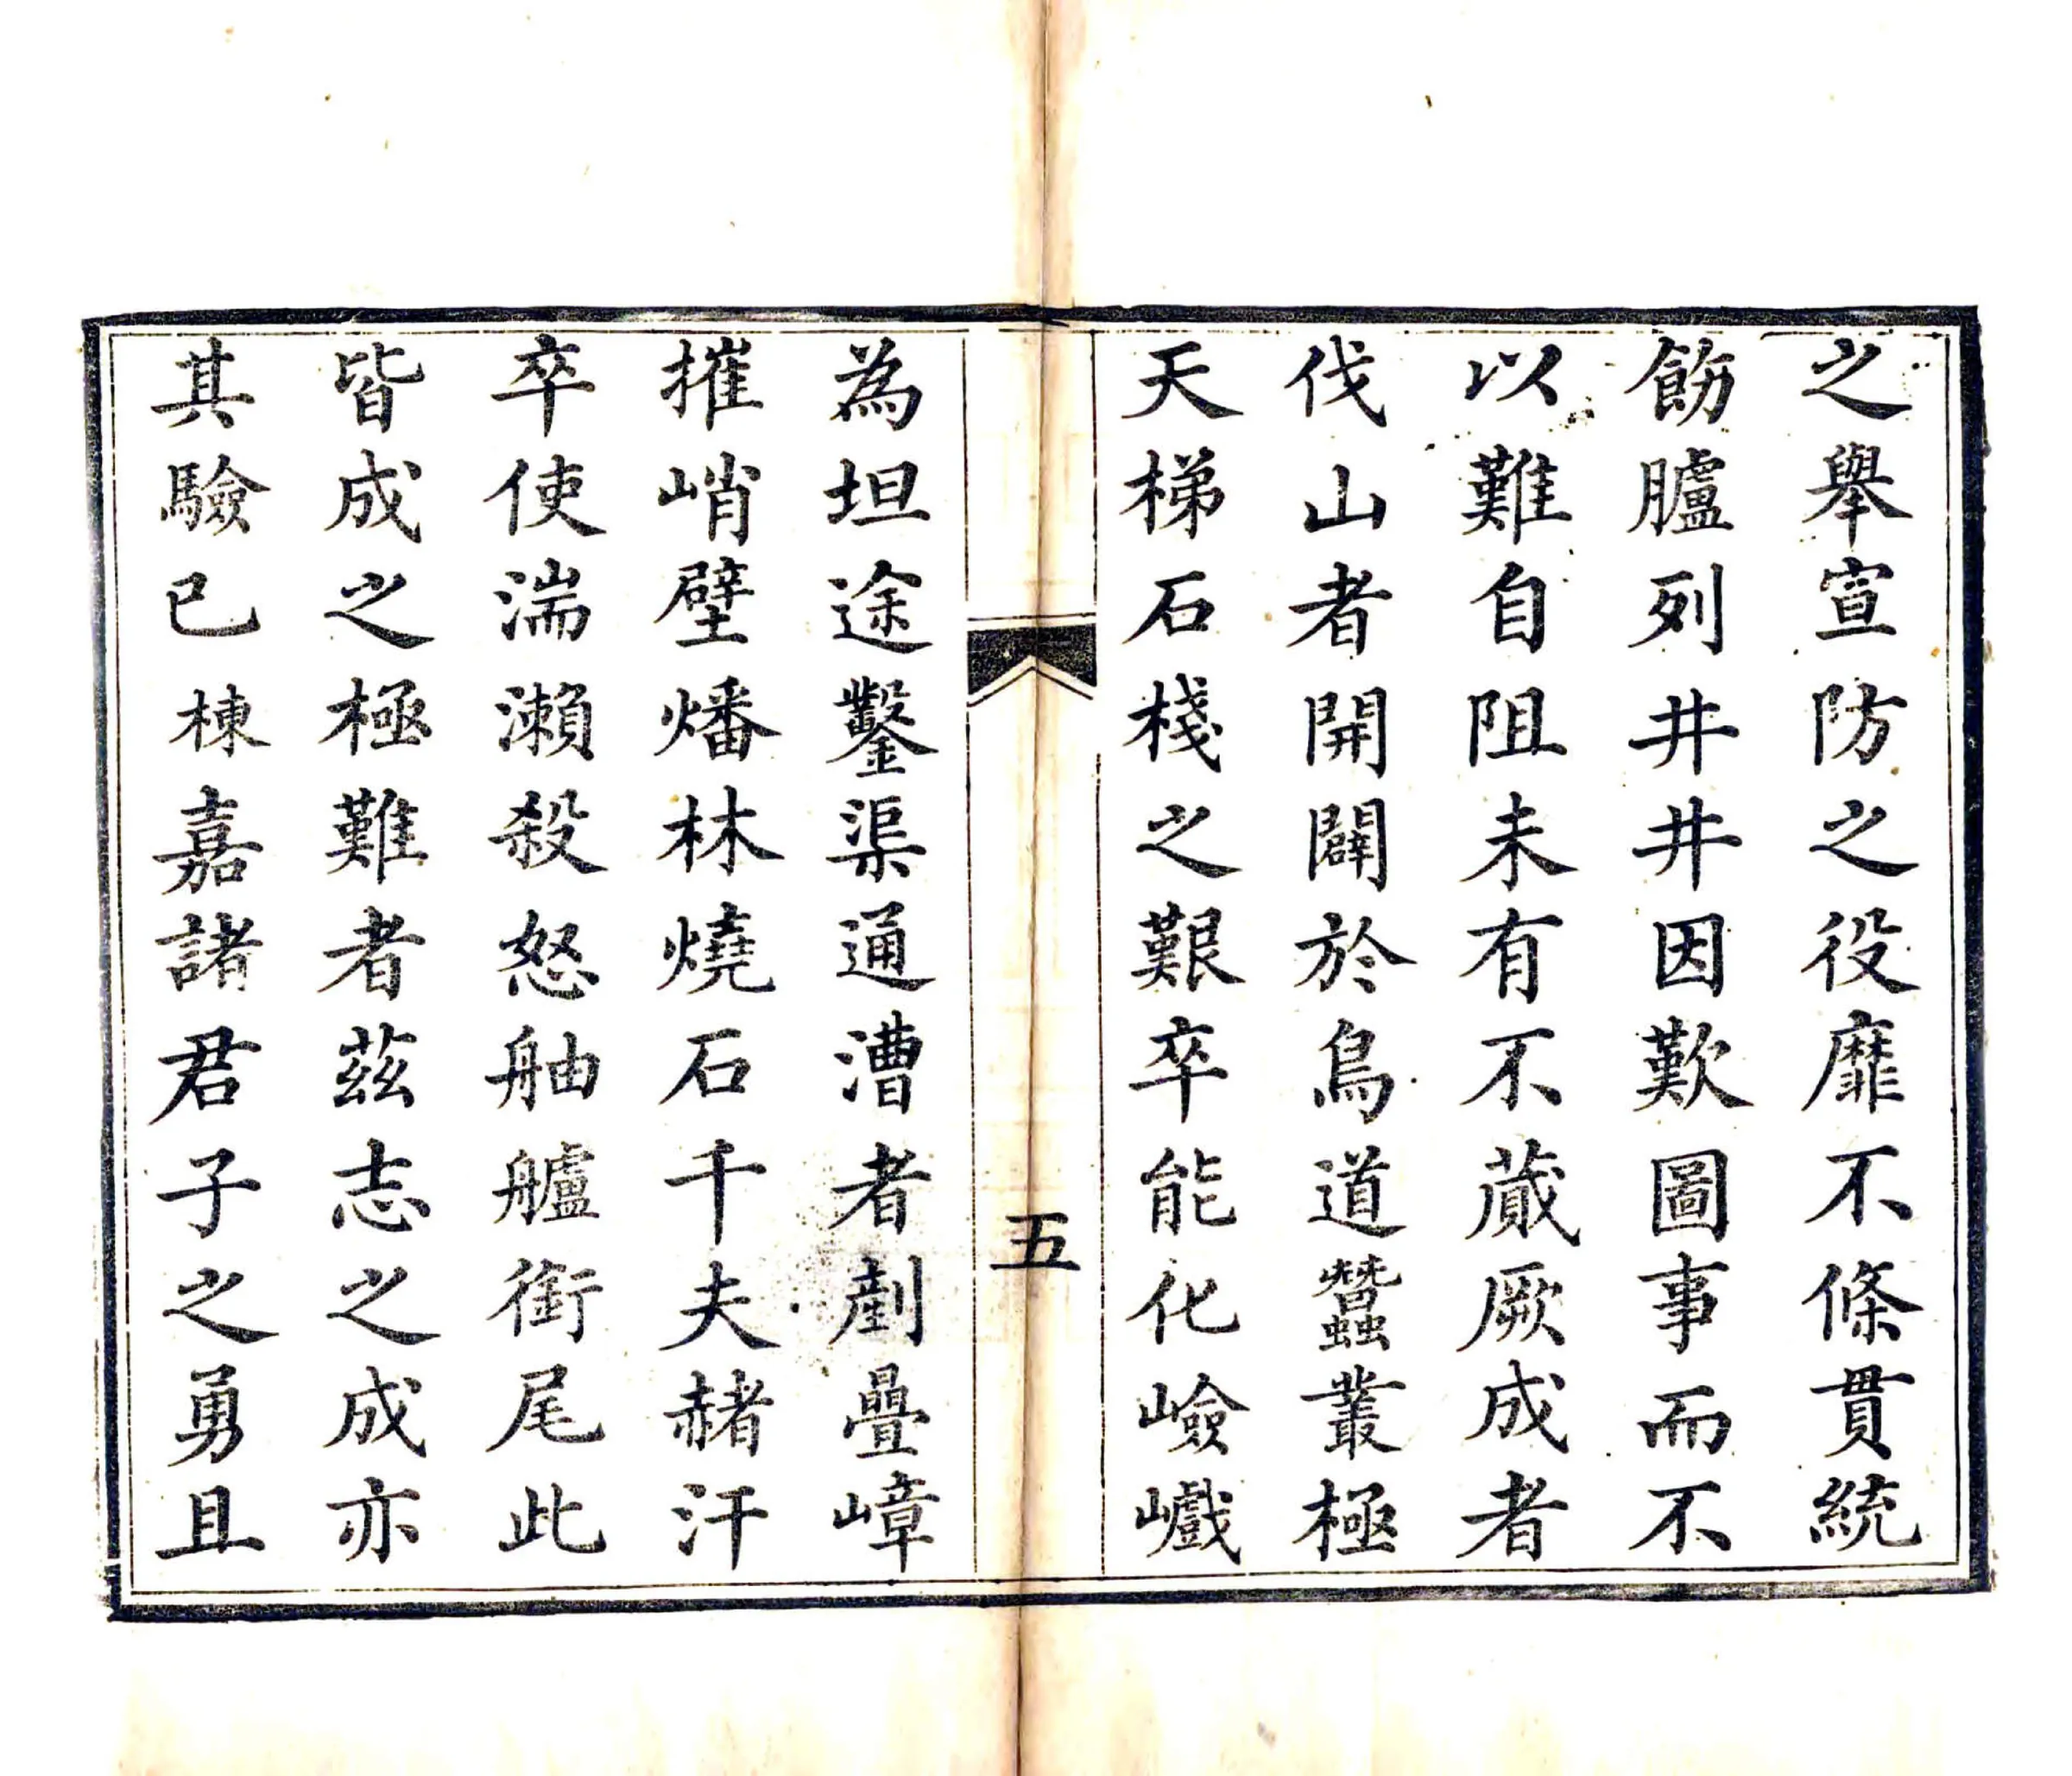 之舉宣防之役靡不條貫統
飭臚列井井因歎圖事而不
以難自阻未有不蕆厥成者
伐山者開闢於鳥道蠶叢極
天梯石棧之艱卒能化嶮巇
五
為坦途鑿渠通漕者剷疊嶂
摧峭壁燔林燒石千夫赭汗
卒使湍瀨殺怒舳艫銜尾此
皆成之極難者茲志之成亦
其驗已棟嘉諸君子之勇且